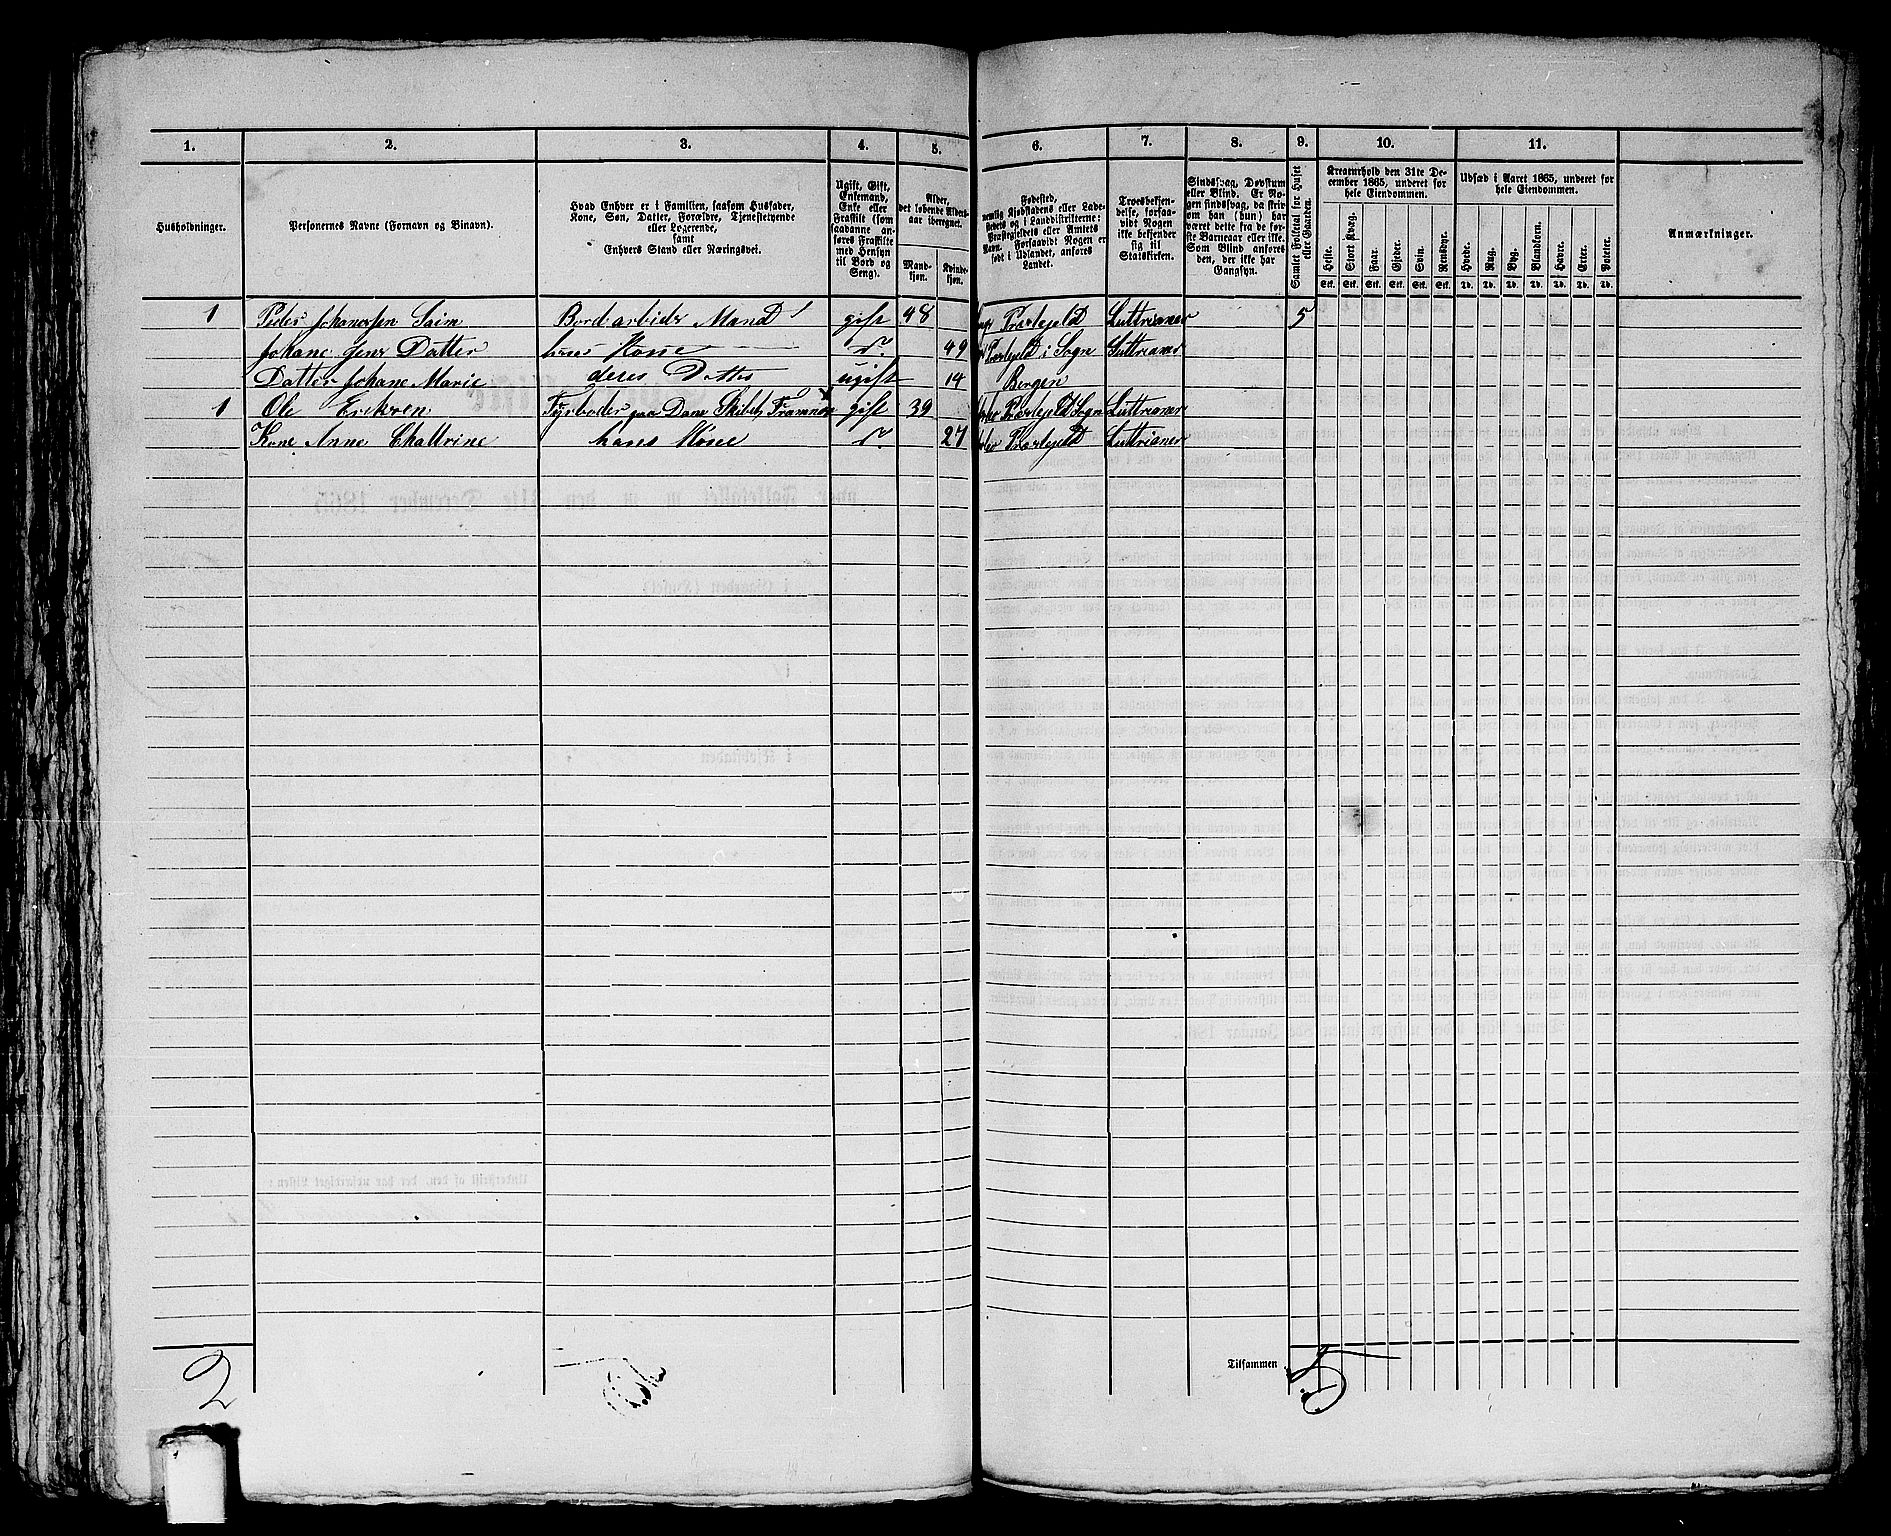 1. 2. 3. 4. 5. 6. 7. 8. 9. 10. 11.
Husholdninger.
Personernes Navne (Fornavn og Binavn).
Hvad Enhver er i Familien, saasom Husfader,
Kone, Søn, Datter, Forældre, Tjenestetyende
eller Logerende,
samt
Enhvers Stand eller Næringsvei.
Ugift, Gift,
Enkemand,
Enke eller
Fraskilt (som
saadanne an-
føres Fraskilte
med Hensyn
til Bord og
Seng).
Alder,
det løbende Alders-
aar iberegnet.
Mand-
kjøn.
Kvinde-
kjøn.
Fødested,
nemlig Kjøbstadens eller Lade-
stedets og i Landdistrikterne:
Præstegjeldets eller Amtets
Navn. Forsaavidt Nogen er
født i Udlandet, anføres
Landet.
Troesbekjen-
delse, forsaa-
vidt Nogen
ikke bekjender
sig til
Statskirken.
Sindssvag, Døvstum
eller Blind. Er No-
gen sindssvag, da skriv
om han (hun) har
været dette fra de før-
ste Barneaar eller ikke.
Som Blind anføres
den, der ikke har
Gangsyn.
Samlet Folketal for Huset
eller Gaarden.
Kreaturhold den 31te De-
cember 1865, underet for
hele Eiendommen.
Heste. Stort Kvæg. Faar. Gjeder. Svin. Rensdyr.
Stk. Stk. Stk. Stk. Stk. Stk.
Udsæd i Aaret 1865, underet for
hele Eiendommen.
Hvede. Rug. Byg. Blandkorn. Havre. Erter. Poteter.
Td. Td. Td. Td. Td. Td. Td.
Anmærkninger.
1 Peder Johanesen Bordarbider Mand gift 48 Præstejeld Luttrianer 5
Johane Jens Datter hans Kone do. 49 Præstejeld i Sogn Luttrianer
Datter Johane Marie deres Datter ugift 14 Bergen
1 Ole Ericksen Fyrboder paa Damp Skibet Framnæs gift 39 Præstejeld Sogn Luttrianer
Kone Anne Chattrine hans Kone do. 27 Præstejeld Luttrianer
Tilsammen 5
2